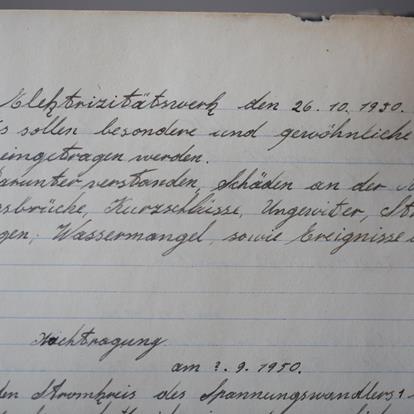 Elektrizitätswerk den 26.10.1950.
sollen besondere und gewöhnliche
eingetragen werden.
darunter verstanden, Schäden an der
sbrüche, Kurzschlüsse, Ungewitter, St
gen, Wassermangel sowie Ereignisse
Nachtragung
am 2.9.1950.
den Stromkreis des Spannungswandlers 1